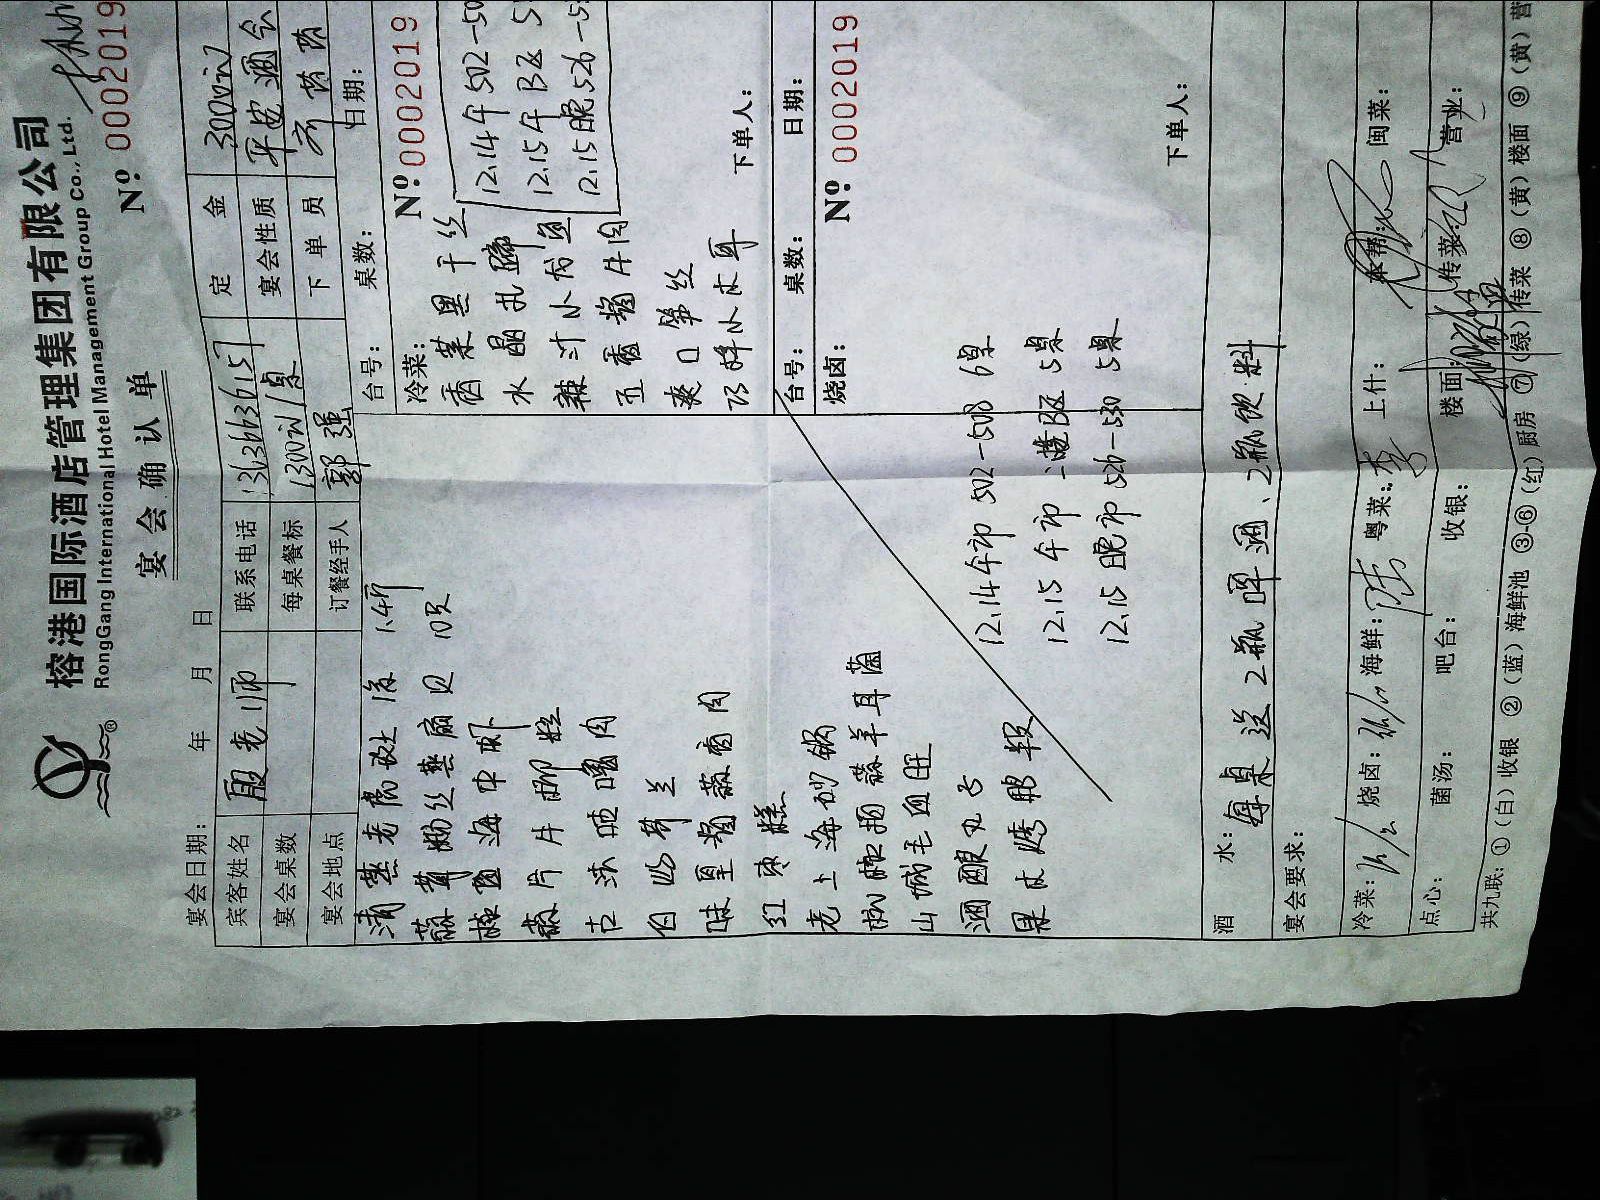 榕港国际酒店管理集团有限公司
RongGang International Hotel Management Group Co., Ltd.
宴会确认单
Nº: 0002019
宴会日期: 年 月 日
宾客姓名 殷老师 联系电话 13636636157 定金 3000元
宴会桌数 每桌餐标 1300元/桌 宴会性质 平安酒会
宴会地点 订餐经手人 郭强 下单员
台号: 桌数: 日期:
清蒸老虎斑 1条 1.4斤
蒜茸粉丝蒸扇贝 10只
椒盐海中虾
蒜片牛柳粒
古法脆哺肉
白灼芥兰
味型酱蒜香肉
红枣糕
老上海砂锅
山城毛血旺
酒酿丸子
果仁烤麸
12.14午市 502-508 6桌
12.15午市 二楼B区 5桌
12.15晚市 526-530 5桌
冷菜: Nº: 0002019
香菜黑干丝
水晶扎蹄
辣汁小龙鱼
五香酱牛肉
爽口笋丝
巧拌小木耳
12.14午 502-50
12.15午 B区 5
12.15晚 526-5
下单人:
台号: 桌数: 日期:
烧卤: Nº: 0002019
下单人:
酒水: 每桌送2瓶啤酒、2瓶饮料
宴会要求:
冷菜: 烧卤: 海鲜: 粤菜: 上什: 本帮: 闽菜:
点心: 菌汤: 吧台: 收银: 楼面: 传菜: 营业:
共九联: ①(白)收银 ②(蓝)海鲜池 ③-⑥(红)厨房 ⑦(绿)传菜 ⑧(黄)楼面 ⑨(黄)营